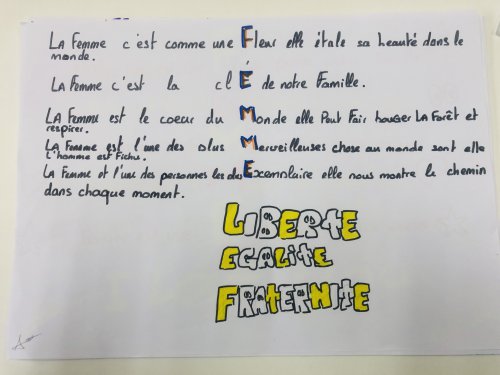 La Femme c'est comme une Fleur elle étale sa beauté dans le
monde.
La Femme c'est la clÉ de notre Famille.
La Femme est le coeur du Monde elle Peut Fair bouger La Forêt et
respirer.
La Femme est l'une des plus Merveilleuses chose au monde sont elle
l'homme est Fichu.
La Femme et l'une des personnes les plus Exemplaire elle nous montre le chemin
dans chaque moment.
LIBERTE
EGALITE
FRATERNITE